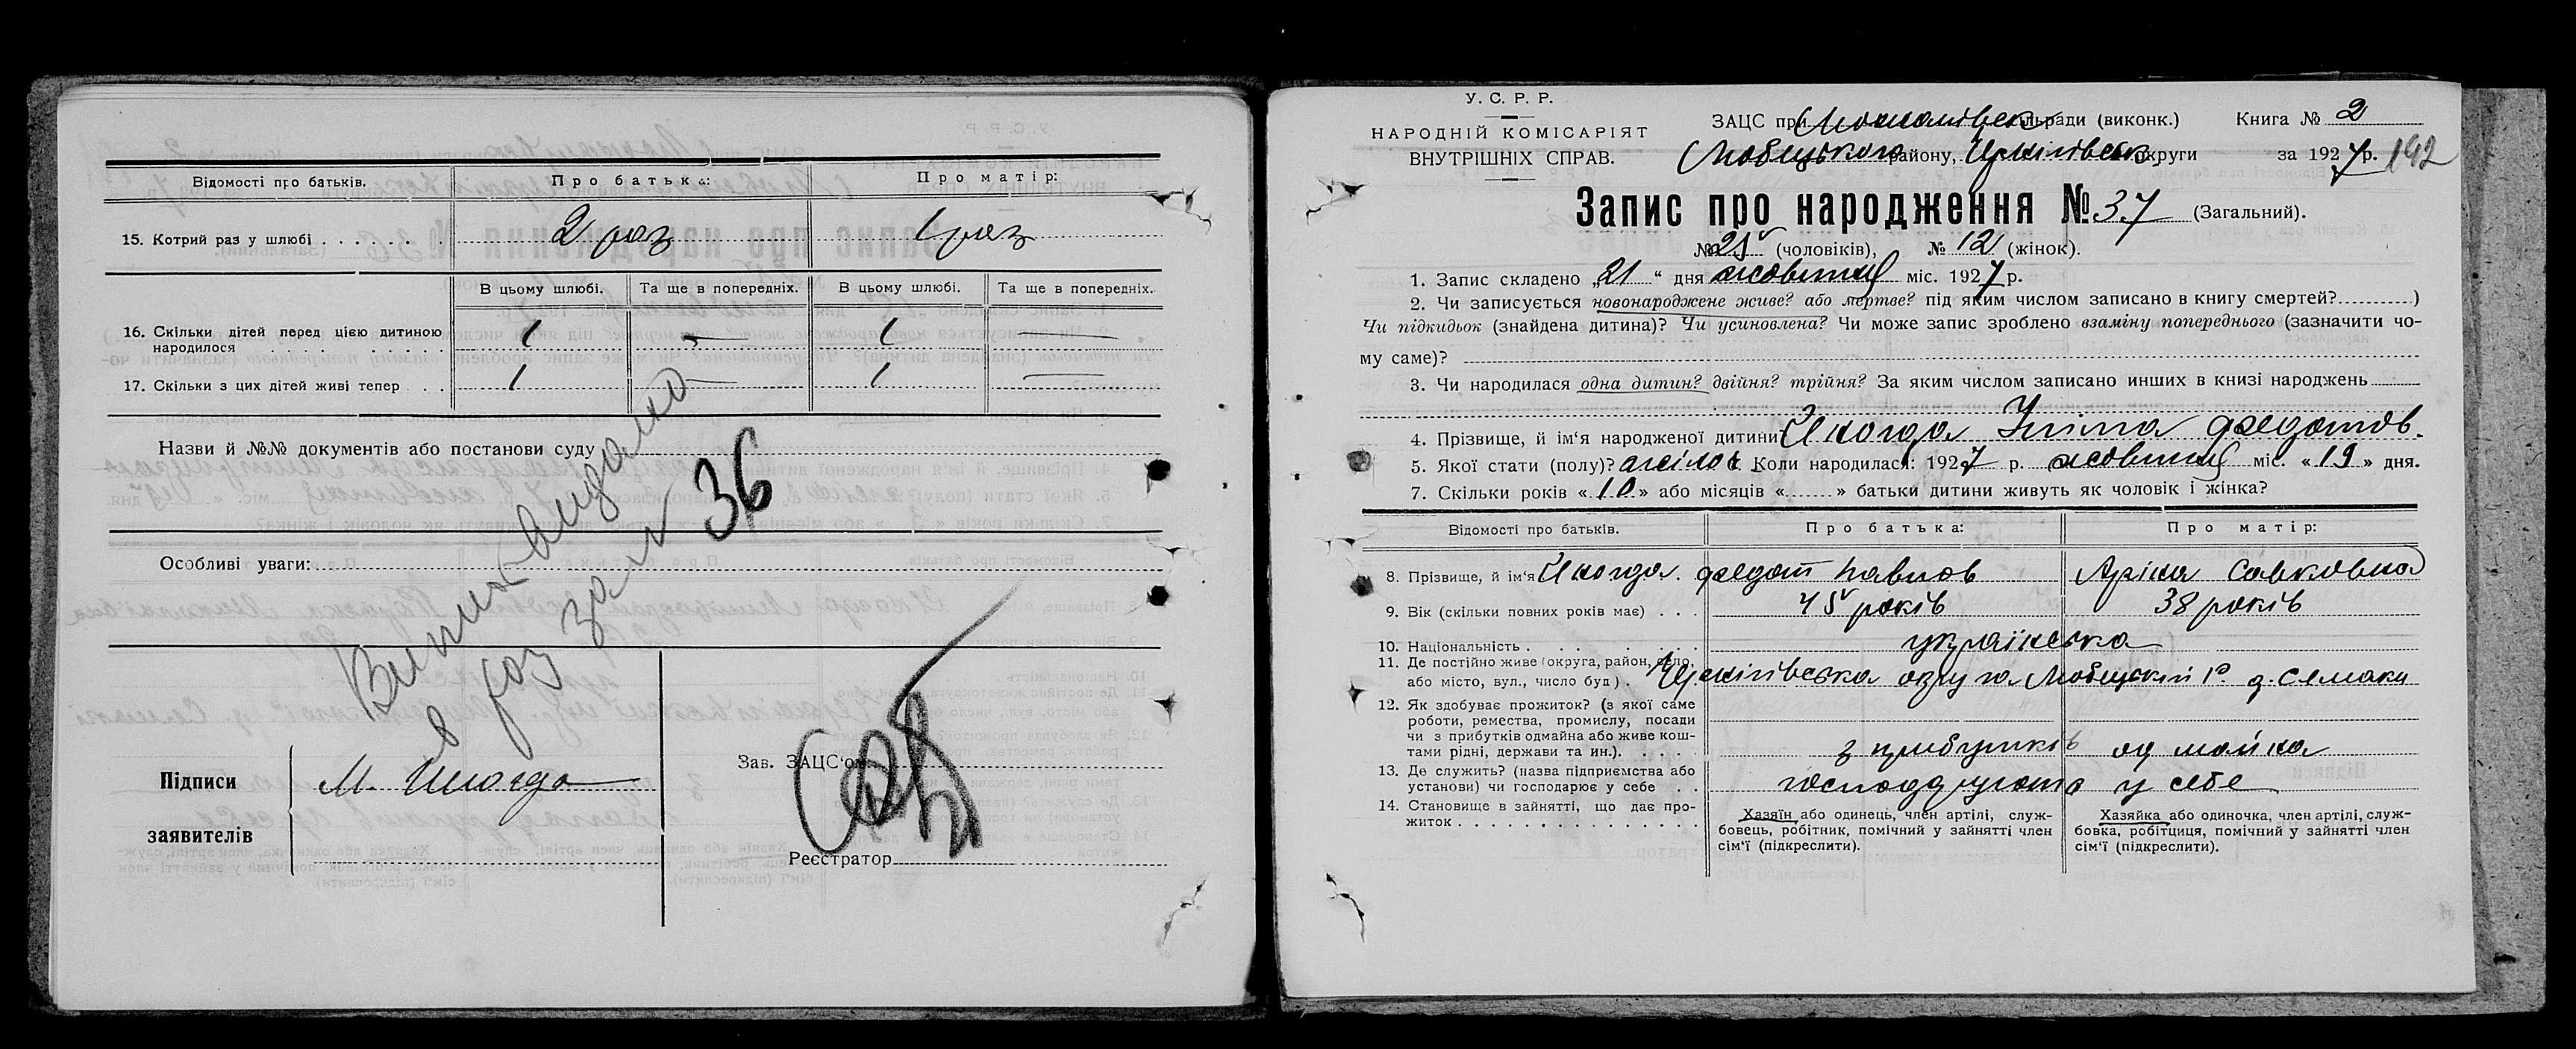 Відомості про батьків. Про батька: Про матір:
15. Котрий раз у шлюбі . . . . . . . 2 раз 1 раз
В цьому шлюбі. Та ще в попередніх. В цьому шлюбі. Та ще в попередніх.
16. Скільки дітей перед цією дитиною
народилося . . . . . . . . . 1 — 1 —
17. Скільки з цих дітей живі тепер . . 1 — 1 —
Назви й №№ документів або постанови суду
Особливі уваги:
36
Підписи
заявителів
Зав. ЗАЦС'ом
Реєстратор
У. С. Р. Р.
НАРОДНІЙ КОМІСАРІЯТ
ВНУТРІШНІХ СПРАВ.
ЗАЦС при сільради (виконк.) Книга № 2
Любецького району, Чернігівськ округи за 1927 р. 192
Запис про народження № 37 (Загальний).
№ 25 (чоловіків), № 12 (жінок).
1. Запис складено „21“ дня жовтня міс. 1927 р.
2. Чи записується новонароджене живе? або мертве? під яким числом записано в книгу смертей? )
Чи підкидьок (знайдена дитина)? Чи усиновлена? Чи може запис зроблено взаміну попереднього (зазначити чо-
му саме)?
3. Чи народилася одна дитин? двійня? трійня? За яким числом записано инших в книзі народжень
4. Прізвище, й ім'я народженої дитини Федотов.
5. Якої стати (полу)? жіноч. Коли народилася: 1927 р. жовтня міс. «19» дня.
7. Скільки років «10» або місяців « » батьки дитини живуть як чоловік і жінка?
Відомості про батьків. Про батька: Про матір:
8. Прізвище, й ім'я Федот Павлов Аріна Савковна
9. Вік (скільки повних років має) . . . 45 років 38 років
10. Національність . . . . . українська
11. Де постійно живе (округа, район, село,
або місто, вул., число буд) . Чернігівська округа Любецький р. д. Семаки
12. Як здобуває прожиток? (з якої саме
роботи, ремества, промислу, посади
чи з прибутків одмайна або живе кош-
тами рідні, держави та ин.). . . . . з прибутків од майна
13. Де служить? (назва підприємства або
установи) чи господарює у себе . . господарюють у себе
14. Становище в зайнятті, що дає про-
житок . . . . . . . . . . . . . . .
Хазяїн або одинець, член артілі, служ-
бовець, робітник, помічний у зайнятті член
сім'ї (підкреслити).
Хазяйка або одиночка, член артілі, служ-
бовка, робітциця, помічний у зайнятті член
сім'ї (підкреслити).